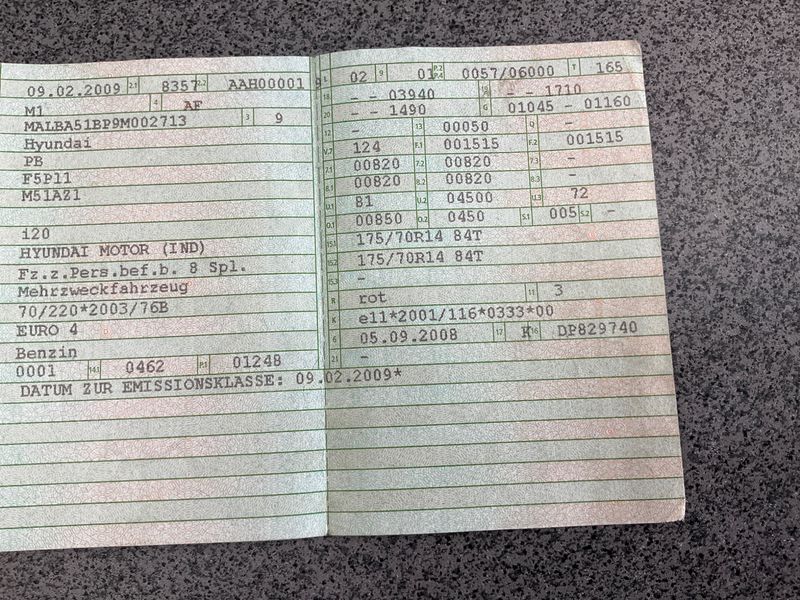 09.02.2009 2.1 8357 2.2 AAH00001 9
M1 4 AF
MALBA51BP9M002713 3 9
Hyundai
PB
F5P11
M51AZ1
i20
HYUNDAI MOTOR (IND)
Fz.z.Pers.bef.b. 8 Spl.
Mehrzweckfahrzeug
70/220*2003/76B
EURO 4
Benzin
0001 14.1 0462 P.1 01248
DATUM ZUR EMISSIONSKLASSE: 09.02.2009*
L 02 9 01 P.2 P.4 0057/06000 T 165
18 - - 03940 19 - - 1710
20 - - 1490 G 01045 - 01160
12 - 13 00050 Q -
V.7 124 F.1 001515 F.2 001515
7.1 00820 7.2 00820 7.3 -
8.1 00820 8.2 00820 8.3 -
U.1 81 U.2 04500 U.3 72
O.1 00850 O.2 0450 S.1 005 S.2 -
15.1 175/70R14 84T
15.2 175/70R14 84T
15.3 -
R rot 11 3
K e11*2001/116*0333*00
6 05.09.2008 17 K 16 DP829740
21 -